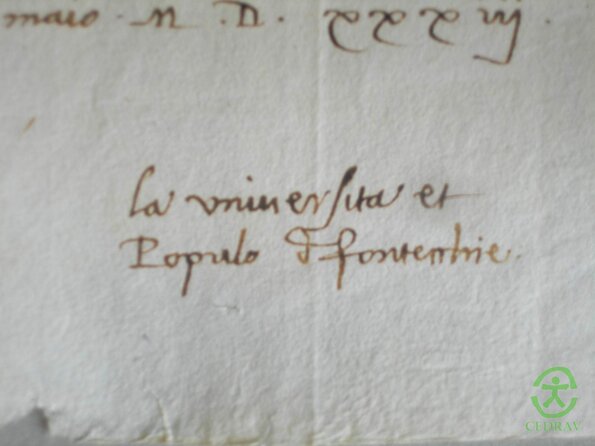 maio M. D. xxxiij.
la vniuersita et
Populo d fontecchie.
CEDRAV